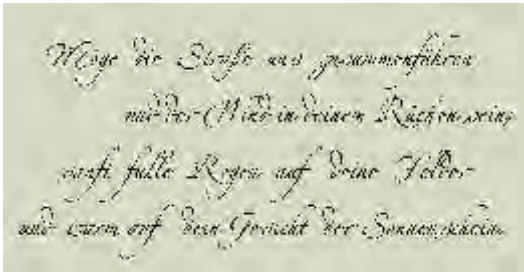 Möge die Straße uns zusammenführen
und der Wind in deinem Rücken sein,
sanft falle Regen auf deine Felder
und warm auf dein Gesicht der Sonnenschein.